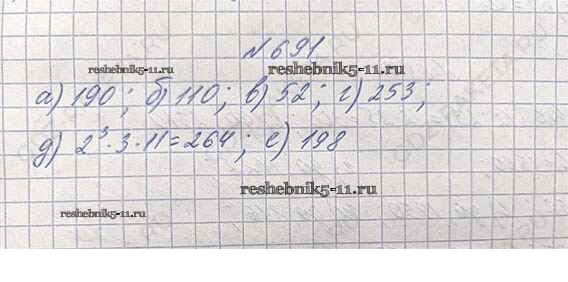 №691
reshebnik5-11.ru reshebnik5-11.ru
а) 190; б) 110; в) 52; г) 253;
д) 2³·3·11=264; е) 198
reshebnik5-11.ru
reshebnik5-11.ru